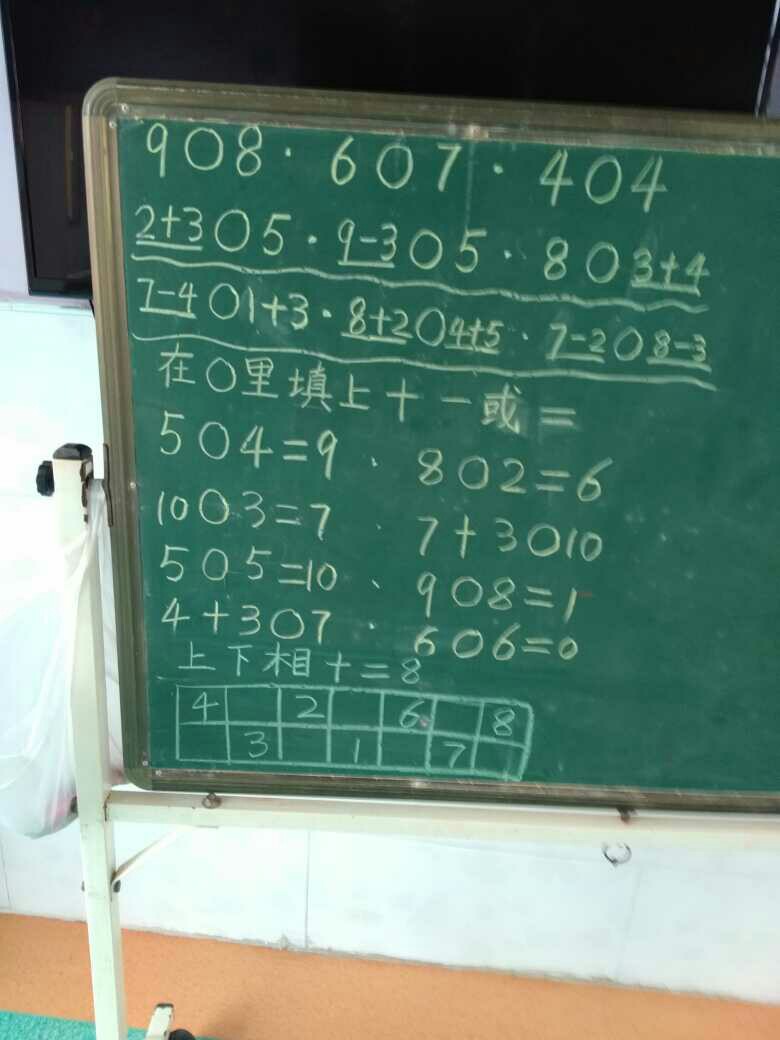 9○8·6○7·4○4
2+3○5·9-3○5·8○3+4
7-4○1+3·8+2○4+5·7-2○8-3
在○里填上+-或=
5○4=9、8○2=6
10○3=7、7+3○10
5○5=10、9○8=1
4+3○7、6○6=0
上下相+=8
4 2 6 8
3 1 7